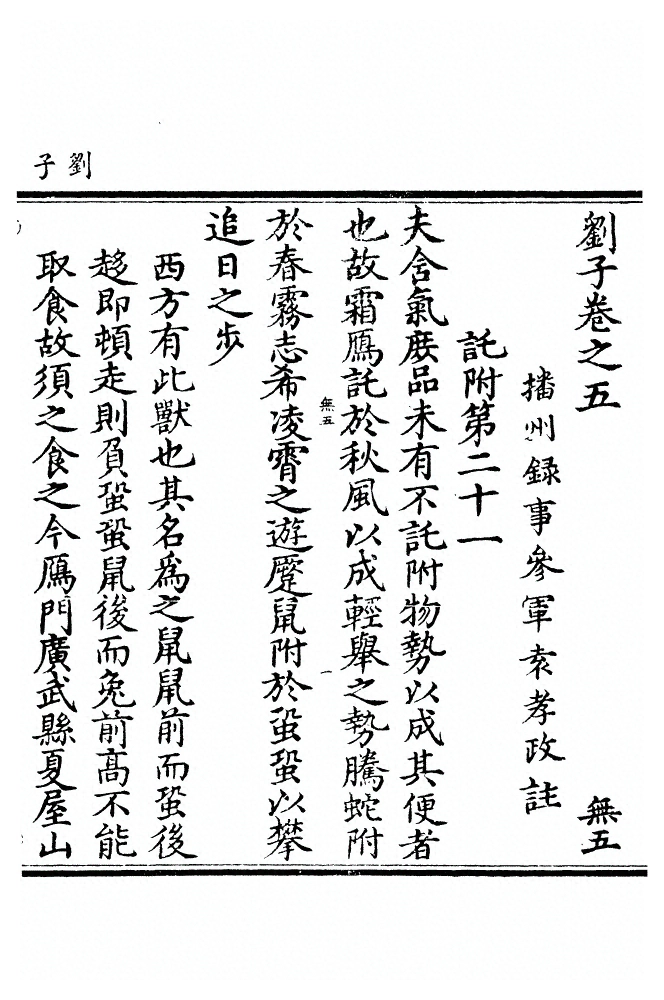 劉子
劉子卷之五
無五
播州録事參軍袁孝政註
託附第二十一
夫含氣庶品未有不託附物勢以成其便者
也故霜鴈託於秋風以成輕舉之勢騰蛇附
於春霧志希凌霄之遊蹷鼠附於蛩蛩以攀
無五
一
追日之步
西方有此獸也其名爲之鼠鼠前而蛩後
趍即頓走則負蛩蛩鼠後而兔前高不能
取食故須之食之今鴈門廣武縣夏屋山